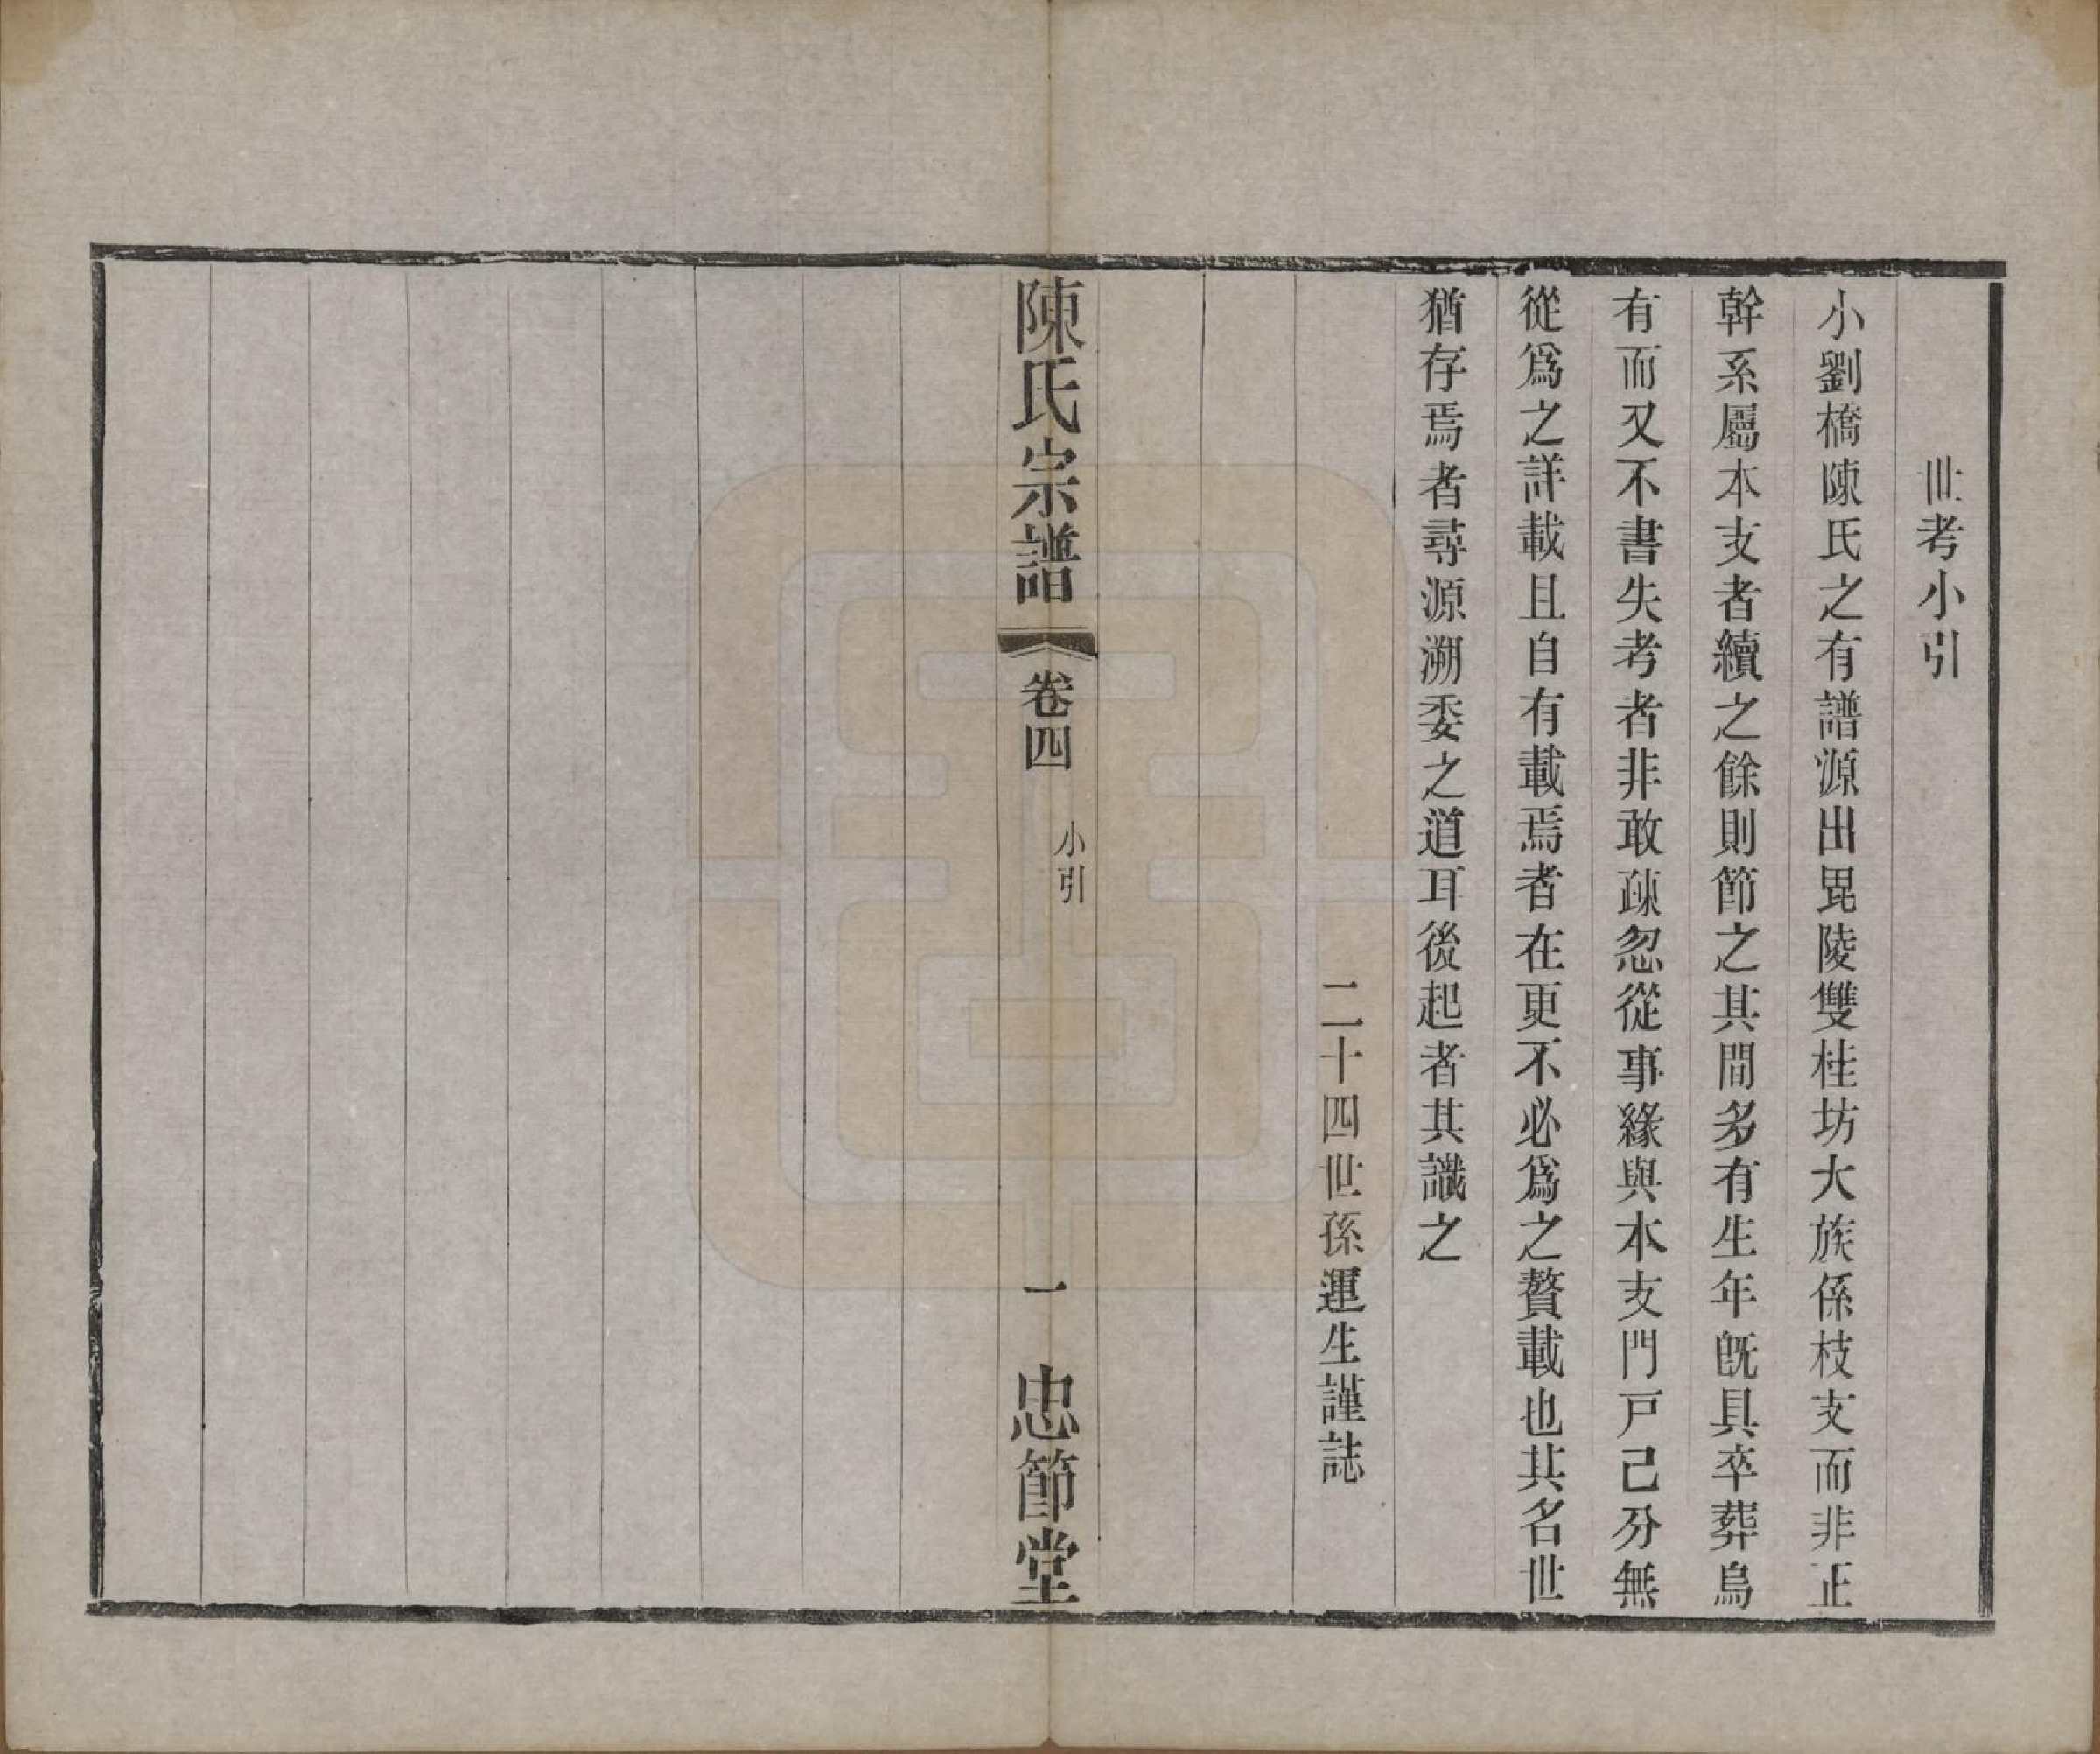 世考小引
小劉橋陳氏之有譜源出毘陵雙桂坊大族係枝支而非正
幹系屬本支者續之餘則節之其間多有生年旣具卒葬烏
有而又不書失考者非敢疎忽從事緣與本支門戸己分無
從爲之詳載且自有載焉者在更不必爲之贅載也其名世
猶存焉者尋源溯委之道耳後起者其識之
二十四世孫運生謹誌
陳氏宗譜 卷四 小引 一 忠節堂